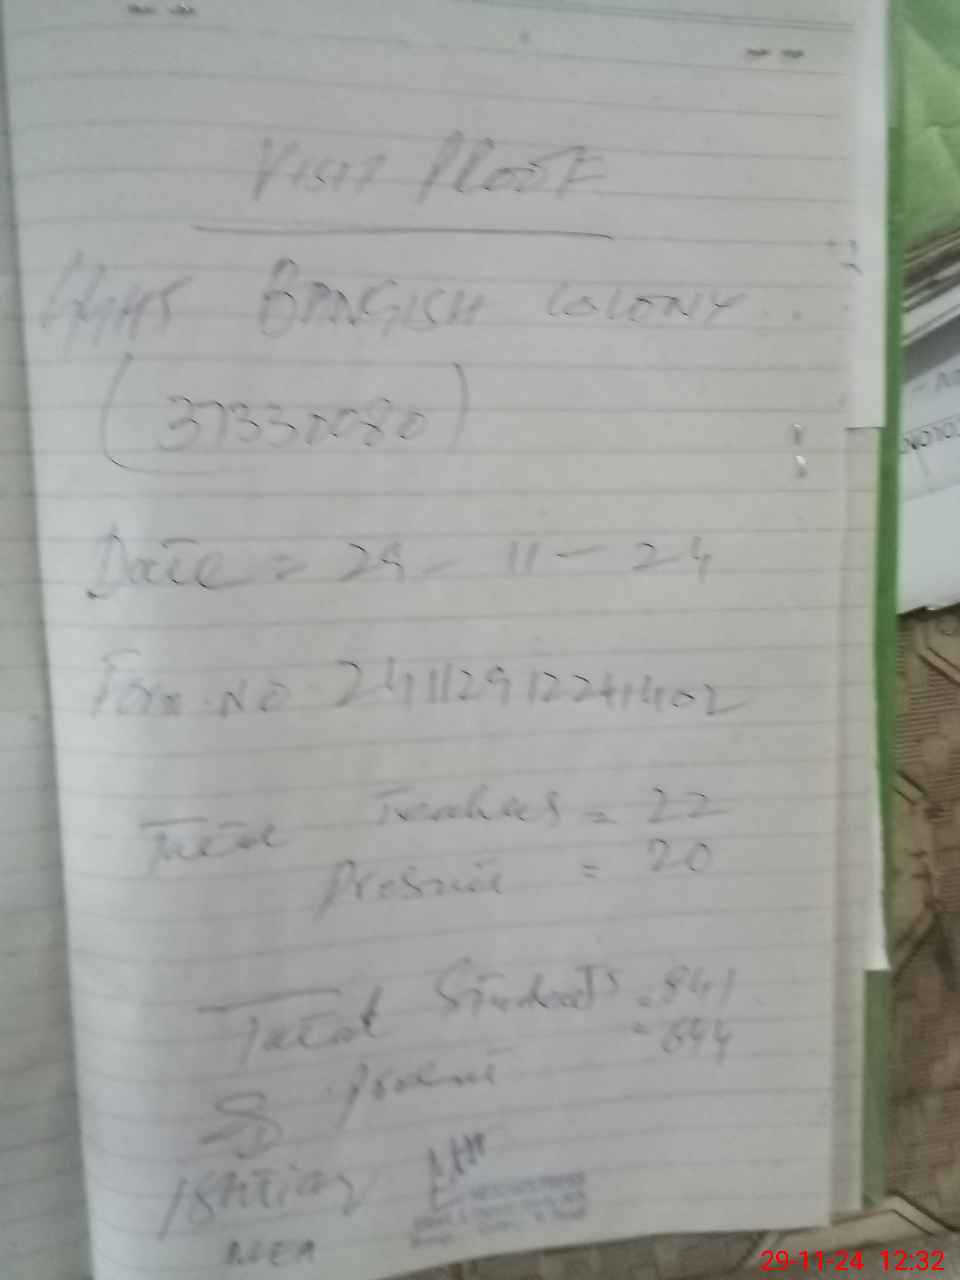 VISIT PROOF
GGHS BANGISH COLONY
(37330080)
Date = 29 - 11 - 24
Form. No 241129122441402
Total Teachers = 22
Present = 20
Total Students = 841
Present = 694
Ishtiaq
AEA
29-11-24 12:32